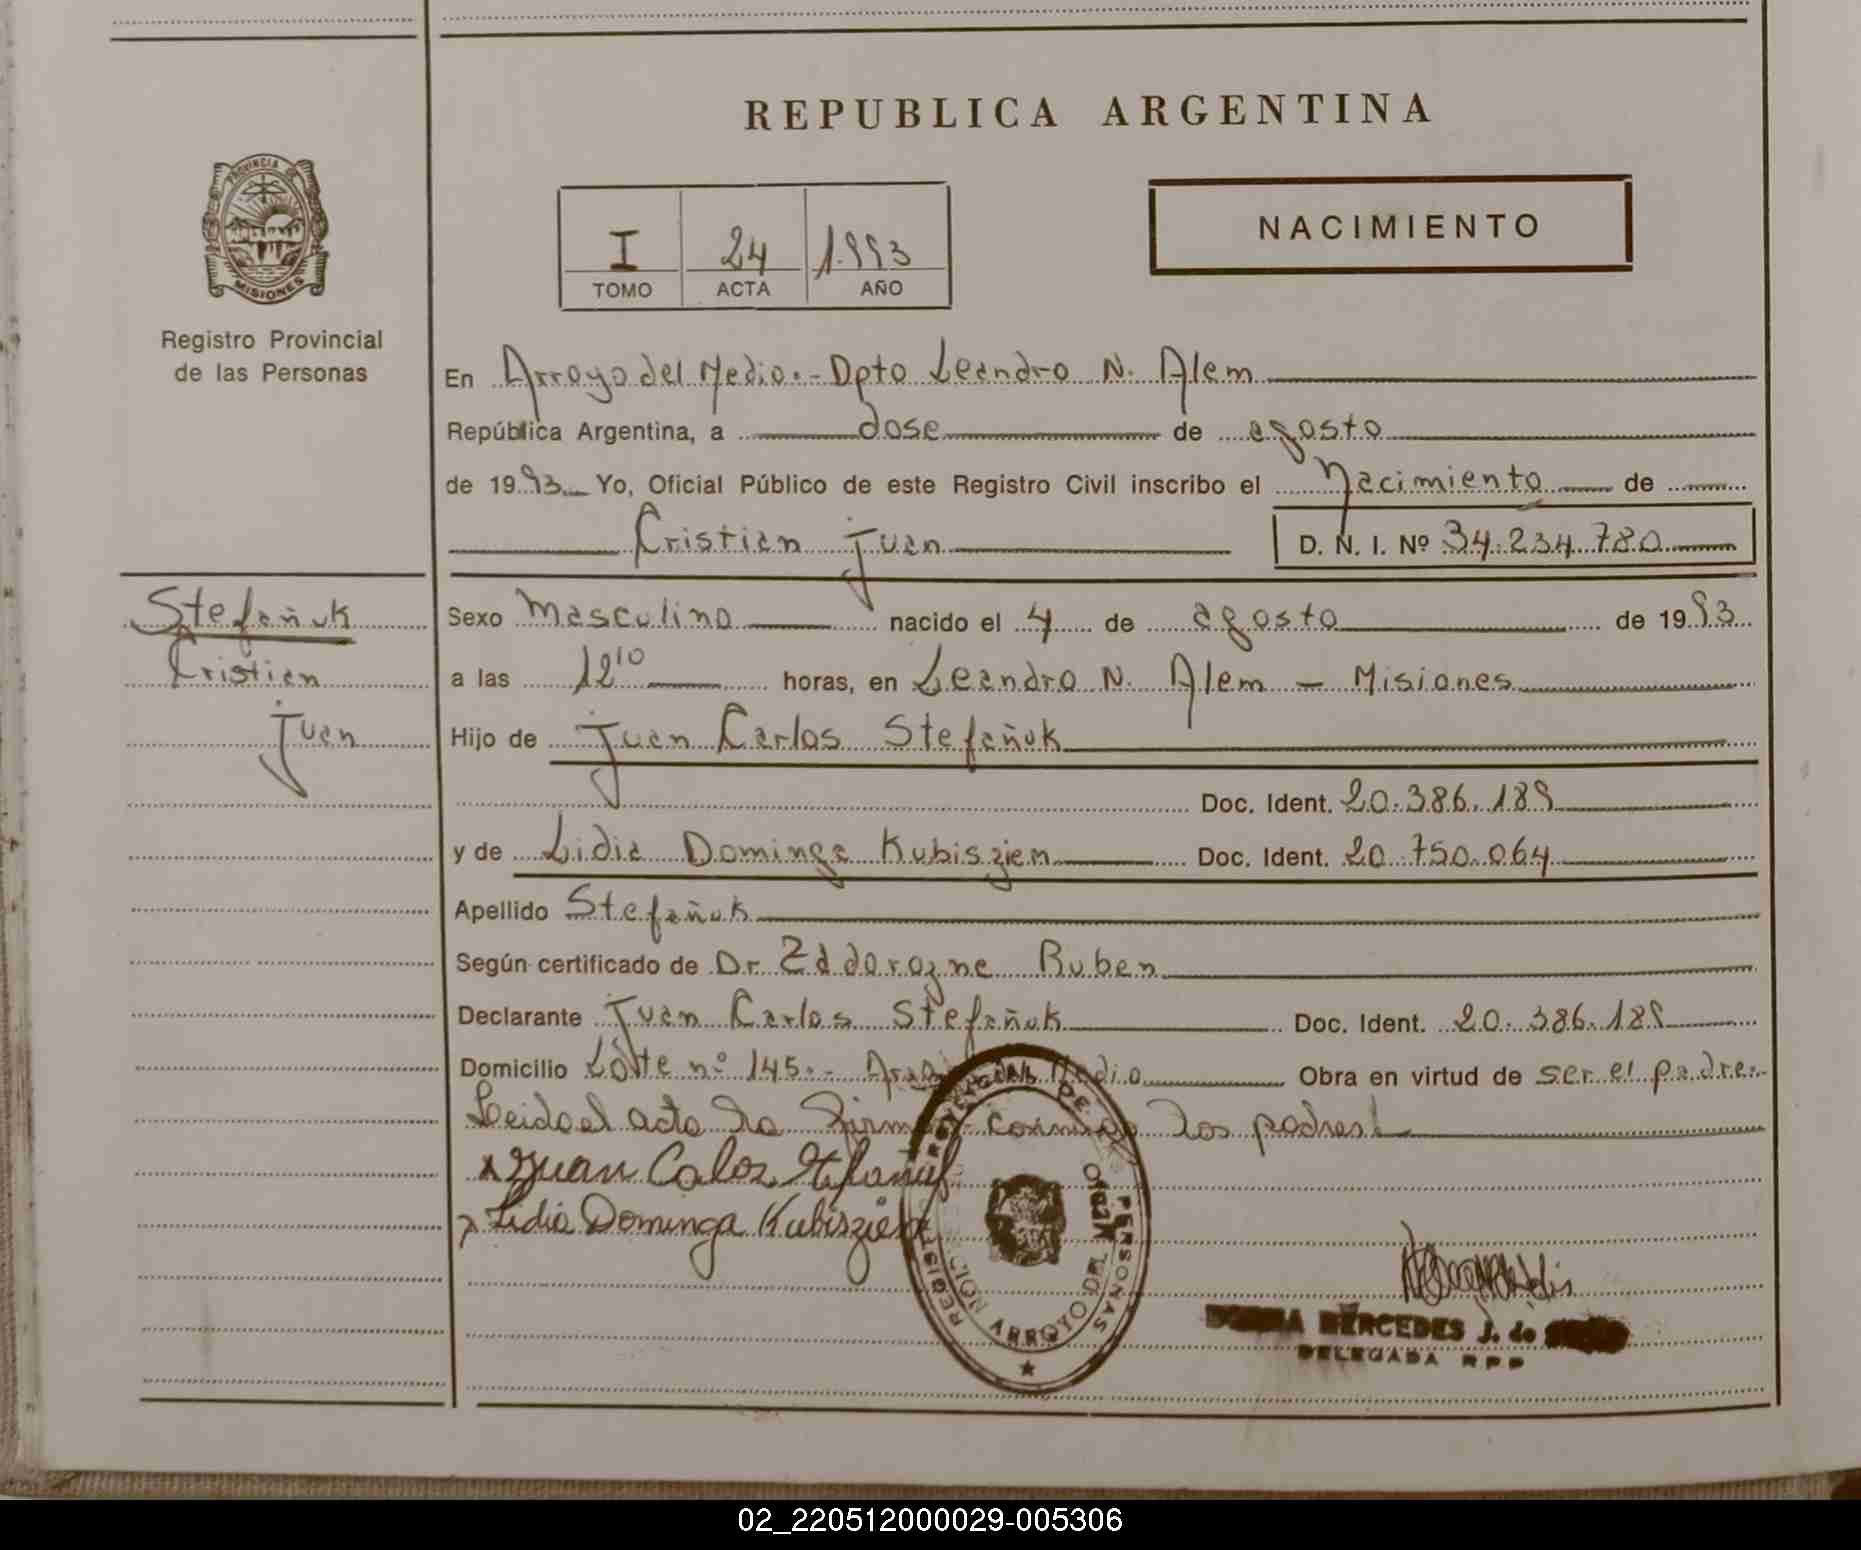 REPUBLICA ARGENTINA
PROVINCIA DE
MISIONES
Registro Provincial
de las Personas
I 24 1.993
TOMO ACTA AÑO
NACIMIENTO
En Arroyo del Medio.- Dpto Leandro N. Alem
República Argentina, a dose de agosto
de 1993 Yo, Oficial Público de este Registro Civil inscribo el Nacimiento de
Cristian Juan D. N. I. Nº 34.234.780
Stefañuk
Cristian
Juan
Sexo Masculino nacido el 4 de agosto de 1993
a las 12¹⁰ horas, en Leandro N. Alem - Misiones
Hijo de Juan Carlos Stefañuk
Doc. Ident. 20.386.189
y de Lidia Dominga Kubiszien Doc. Ident. 20.750.064
Apellido Stefañuk
Según certificado de Dr Zadorozne Ruben
Declarante Juan Carlos Stefañuk Doc. Ident. 20.386.189
Domicilio Lote nº 145.- Arroyo del Medio Obra en virtud de ser el padre.-
Leida el acta la firman conmigo los padres
x Juan Calos Stefañuk
x Lidia Dominga Kubiszien
REGISTRO PROVINCIAL DE LAS PERSONAS
ARROYO DEL MEDIO
MERCEDES J. de
DELEGADA RPP
02_220512000029-005306